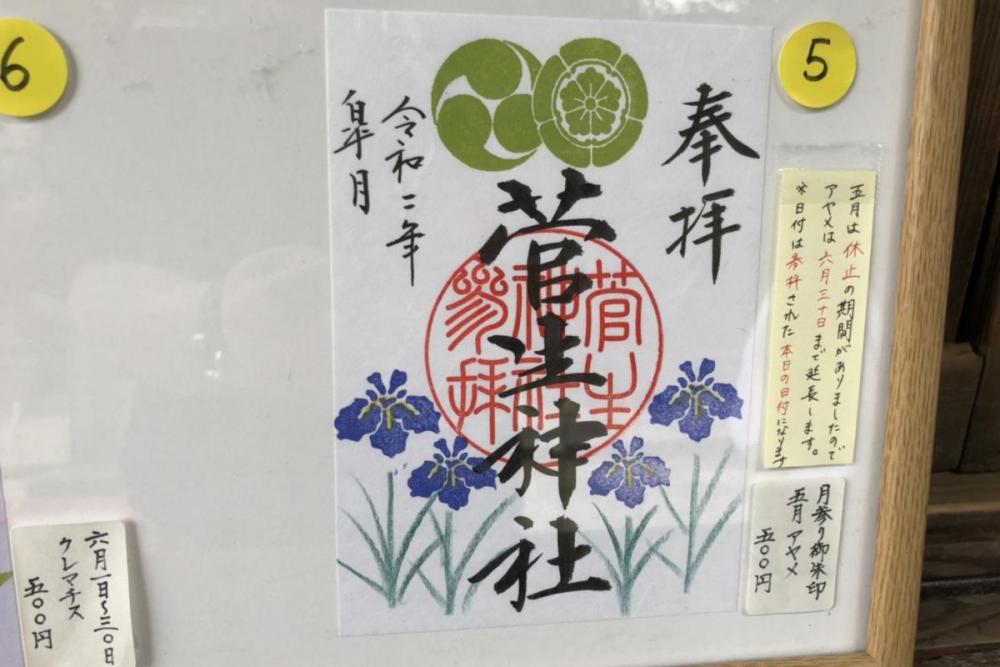 5
奉拝
菅生神社
菅生
神社
参拝
令和二年
皐月
五月は休止の期間がありましたので
アヤメは六月三十日まで延長します。
※日付は参拝された本日の日付になります
月参り御朱印
五月アヤメ
五〇〇円
6
六月一日~三〇日
クレマチス
五〇〇円